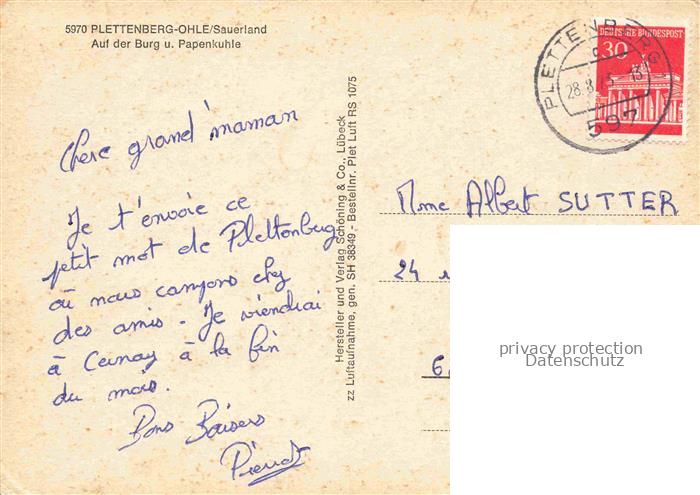 5970 PLETTENBERG-OHLE/Sauerland
Auf der Burg u. Papenkuhle
Chère grand'maman
Je t'envoie ce
petit mot de Plettenberg
où nous campons chez
des amis. Je viendrai
à Cernay à la fin
du mois.
Bons Baisers
Pierrot
Hersteller und Verlag Schöning & Co., Lübeck
zz Luftaufnahme, gen. SH 38349 - Bestellnr. Plet Luft RS 1075
PLETTENBERG
28.8. 13
597
DEUTSCHE BUNDESPOST
30
Mme Albert SUTTER
24
6
privacy protection
Datenschutz